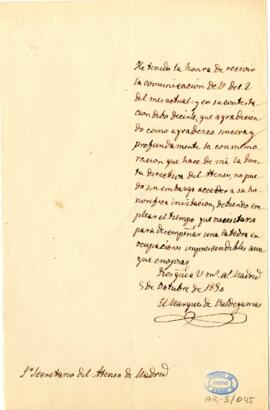 He tenido la honra de recivir
la comunicacion de V del 2
del mes actual: y en su contesta
cion debo decirle, que agradecien
do como agradezco sincera y
profundamente la conmemo
racion que hace de mi la Jun
ta directiva del Ateneo, no pue
do sin embargo acceder a su ho
norifica invitacion, debiendo em
plear el tiempo que necesitaria
para desempeñar una catedra en
ocupaciones imprescindibles aun
que enojosas.
Dios gue a V ms as Madrid
5 de Octubre de 1850
El Marques de Valdegamas
Sr Secretario del Ateneo de Madrid
ATENEO DE
MADRID
AR-3/045